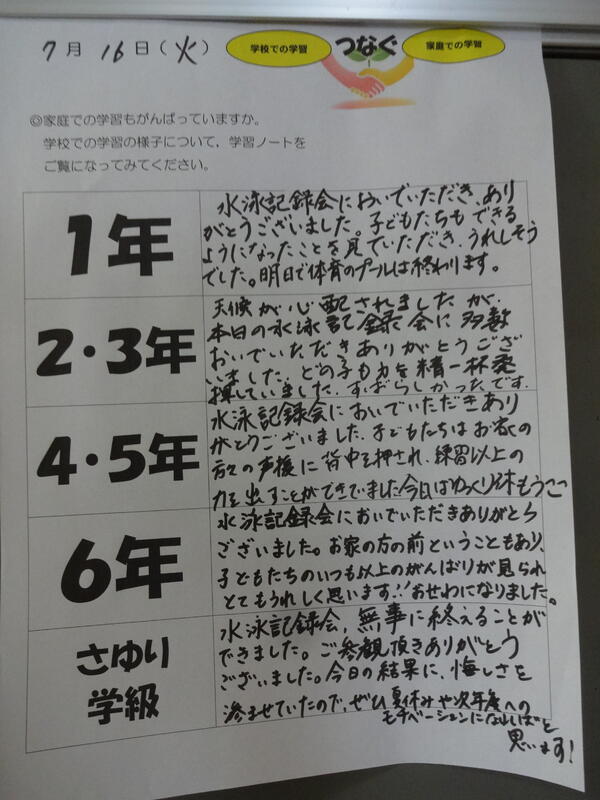 7月 16日(火)
学校での学習 つなぐ 家庭での学習
◎家庭での学習もがんばっていますか。
学校での学習の様子について，学習ノートを
ご覧になってみてください。
1年
水泳記録会においでいただき、あり
がとうございました。子どもたちもできる
ようになったことを見ていただき、うれしそう
でした。明日で体育のプールは終わります。
2・3年
天候が心配されましたが、
本日の水泳記録会に多数
おいでいただきありがとうござ
いました。どの子も力を精一杯発
揮していました。すばらしかったです。
4・5年
水泳記録会においでいただきあり
がとうございました。子どもたちはお家の
方々の声援に背中を押され、練習以上の
力を出すことができていました今日はゆっくり休もう
6年
水泳記録会においでいただきありがとう
ございました。お家の方の前ということもあり、
子どもたちのいつも以上のがんばりが見られ
とてもうれしく思います!!おせわになりました。
さゆり
学級
水泳記録会，無事に終えることが
できました。ご参観頂きありがとう
ございました。今日の結果に、悔しさを
滲ませていたので、ぜひ夏休みや次年度への
モチベーションになればと
思います!